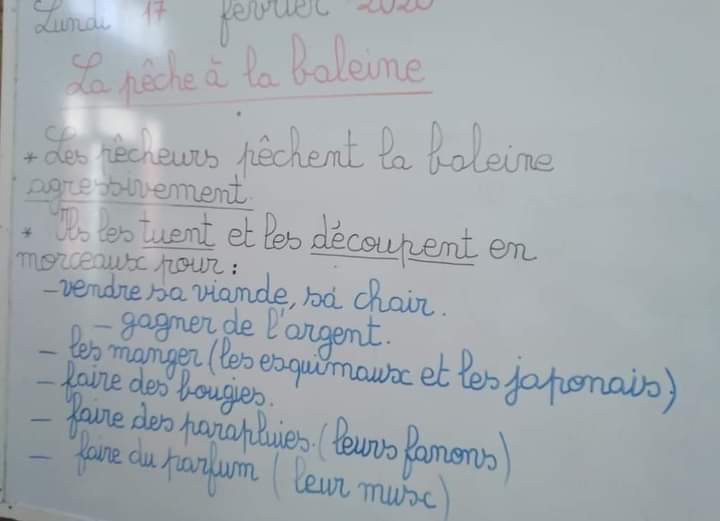 Lundi 17 février 2020
La pêche à la baleine
* Les pêcheurs pêchent la baleine
agressivement.
* Ils les tuent et les découpent en
morceaux pour :
- vendre sa viande, sa chair.
- gagner de l'argent.
- les manger (les esquimaux et les japonais)
- faire des bougies.
- faire des parapluies. (leurs fanons)
- faire du parfum (leur musc)